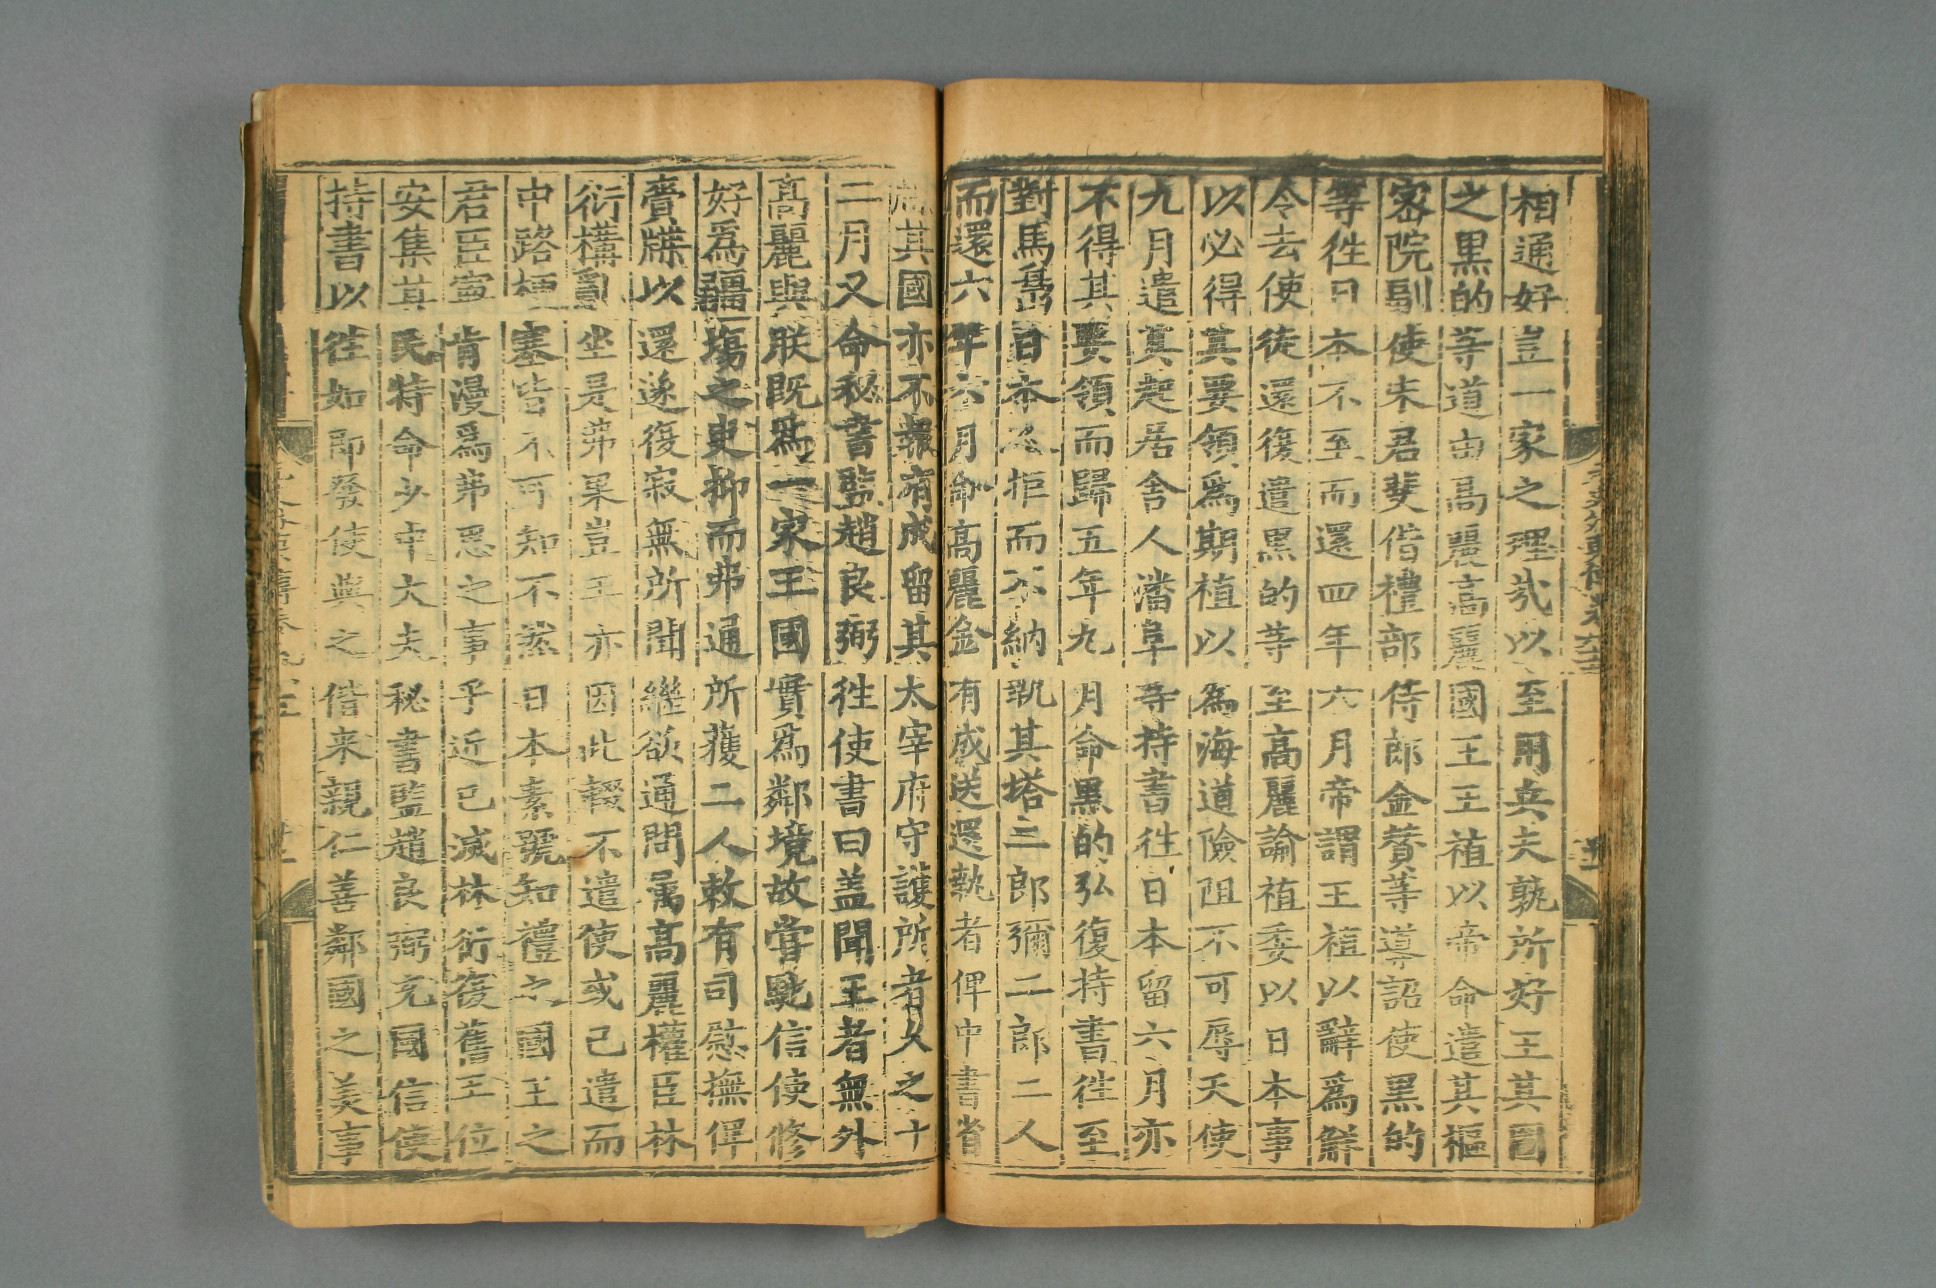 相通好豈一家之理哉以至用兵夫孰所好王其圖
之黑的等道由高麗高麗國王王禃以帝命遣其樞
密院副使宋君斐借禮部侍郎金賛等導詔使黑的
等徃日本不至而還四年六月帝謂王禃以辭爲解
令去使徒還復遣黑的等至高麗諭禃委以日本事
以必得其要領爲期禃以為海道險阻不可辱天使
九月遣其起居舍人潘阜等持書徃日本留六月亦
不得其要領而歸五年九月命黑的弘復持書徃至
對馬島日本人拒而不納執其塔二郎彌二郎二人
而還六年六月命高麗金有成送還執者俾中書省
牒其國亦不報有成留其太宰府守護所者久之十
二月又命秘書監趙良弼徃使書曰盖聞王者無外
高麗與朕既爲一家王國實爲鄰境故嘗馳信使修
好爲疆塲之吏抑而弗通所獲二人敕有司慰撫俾
賫牒以還遂復寂無所聞繼欲通問屬高麗權臣林
衍構亂坐是弗果豈王亦因此輟不遣使或已遣而
中路梗塞皆不可知不然日本素號知禮之國王之
君臣寧肯漫爲弗思之事乎近已滅林衍復舊王位
安集其民特命少中大夫秘書監趙良弼充國信使
持書以徃如即發使與之偕来親仁善鄰國之美事